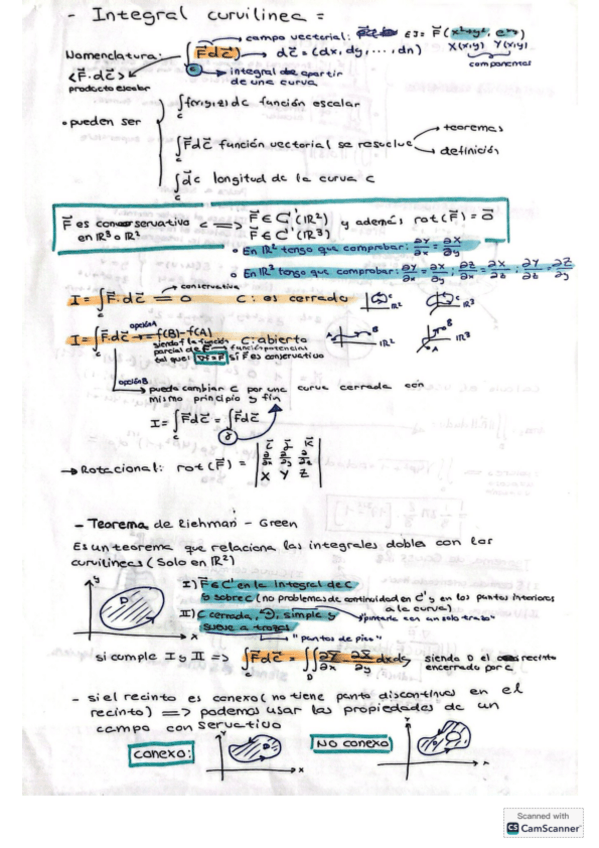 - Integral curvilinea =
campo vectorial: EJ= F⃗(x²+y², eˣʸ)
X(x,y) Y(x,y)
componentes
Nomenclatura: ∫ F⃗dc⃗ → dc⃗ = (dx, dy, ..., dn)
c → integral de apartir
de una curva
<F⃗·dc⃗>
producto escalar
• pueden ser
∫c f(x,y,z) dc función escalar
∫c F⃗dc⃗ función vectorial se resuelve → teoremas
→ definición
∫c dc longitud de la curva c
F⃗ es conservativo <=> F⃗ ∈ C'(ℝ²) y además rot(F⃗) = 0⃗
en ℝ³ o ℝ² F⃗ ∈ C'(ℝ³)
o En ℝ² tengo que comprobar: ∂Y/∂x = ∂X/∂y
o En ℝ³ tengo que comprobar: ∂Y/∂x = ∂X/∂y ; ∂Z/∂x = ∂X/∂z ; ∂Y/∂z = ∂Z/∂y
conservativa
I = ∫c F⃗·dc⃗ = 0 C: es cerrado ℝ² ℝ³
opción A
I = ∫c F⃗·dc⃗ = f(B) - f(A) C: abierto
A B ℝ² A B ℝ³
siendo f la función
parcial de F⃗ → función potencial
tal que: ∇f = F⃗ si F⃗ es conservativo
opción B
puedo cambiar C por una curva cerrada con
mismo principio y fin
I = ∫c F⃗dc⃗ = ∫γ F⃗dc⃗
→ Rotacional: rot(F⃗) = | i⃗ j⃗ k⃗ |
| ∂/∂x ∂/∂y ∂/∂z |
| X Y Z |
- Teorema de Riehman - Green
Es un teorema que relaciona las integrales dobles con las
curvilineas (Solo en ℝ²)
y D x
I) F⃗ ∈ C' en la integral de C
o sobre C (no problemas de continuidad en C' y en los puntos interiores
a la curva)
II) C cerrada, simple y
suave a trozos
"pintarla con un solo trazo"
"puntos de pico"
si cumple I y II => ∫c F⃗dc⃗ = ∫∫D ∂Y/∂x - ∂X/∂y dxdy siendo D el recinto
encerrado por c
- si el recinto es conexo (no tiene punto discontinuos en el
recinto) => podemos usar las propiedades de un
campo conservativo
conexo: y D x
NO conexo y D x
Scanned with
CS CamScanner